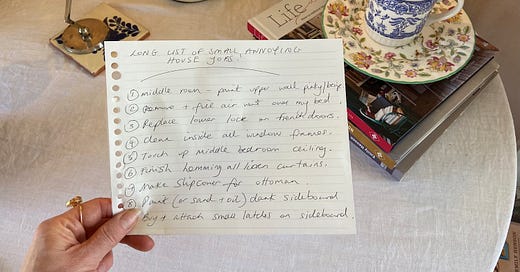 LONG LIST OF SMALL, ANNOYING
HOUSE JOBS!
① Middle room - paint upper wall pinky/beige.
② Remove + fill air vent over my bed.
③ Replace lower lock on front doors.
④ Clean inside all window frames.
⑤ Touch up middle bedroom ceiling.
⑥ Finish hemming all linen curtains.
⑦ Make slipcover for ottoman.
⑧ Paint (or sand + oil) dark sideboard
Buy + attach small latches on sideboard.
Life